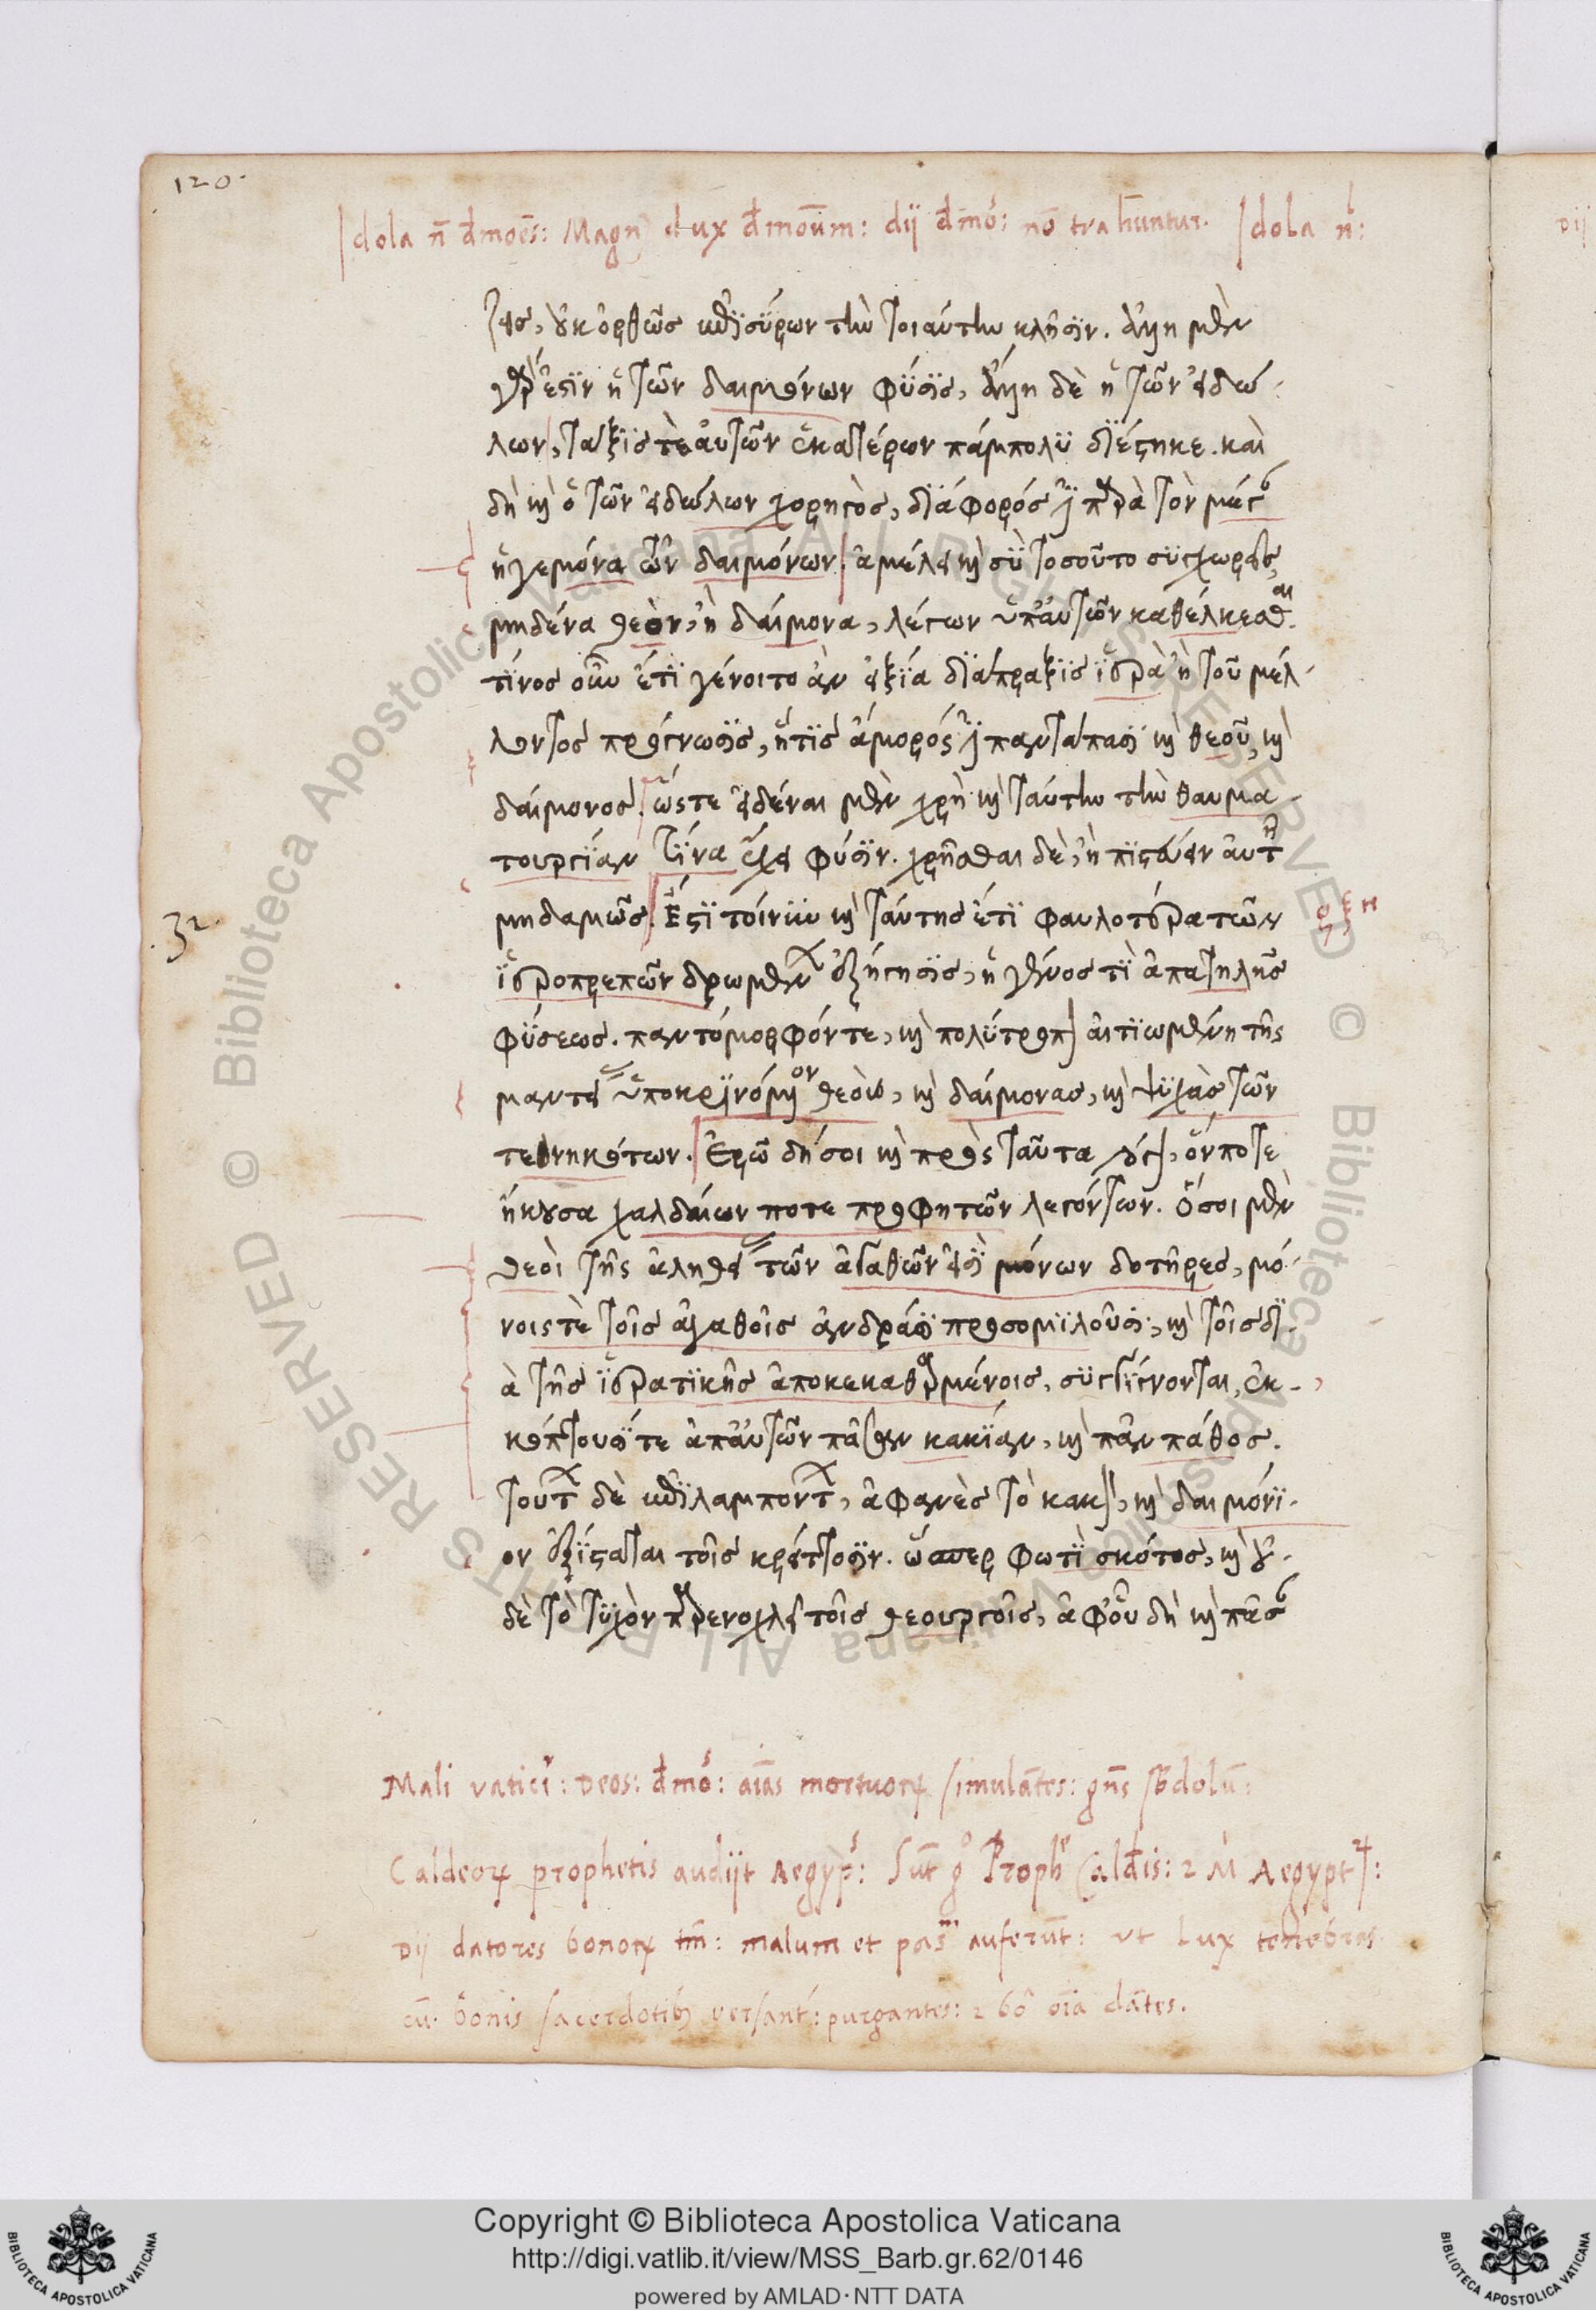 120.
Idola n̄ d̄moēs: Magn dux d̄monū̄m: dij d̄mo: nō trahuntur. Idola n:
Dij
ζεις, οὐκ ὀρθῶς ἐπισύρων τὴν τοιαύτην κλῆσιν. ἄλλη μὲν
γάρ ἐστιν ἡ τῶν δαιμόνων φύσις, ἄλλη δὲ ἡ τῶν εἰδώ-
λων, τάξις τὲ αὐτῶν ἑκατέρων πάμπολυ διέστηκε. καὶ
δὴ καὶ ὁ τῶν εἰδώλων χορηγὸς, διάφορός ἐστι παρὰ τὸν μέγαν
ἡγεμόνα τῶν δαιμόνων. ἀμέλει καὶ σὺ τοσοῦτο συγχωρεῖς,
μηδένα θεὸν, ἢ δαίμονα, λέγων ὑπ' αὐτῶν καθέλκεσθαι.
τίνος οὖν ἔτι γένοιτο ἂν ἀξία διάπραξις ἱερὰ ἢ τοῦ μέλ-
λοντος πρόγνωσις, ἥτις ἄμορός ἐστι παντάπασι καὶ θεοῦ, καὶ
δαίμονος. ὥστε εἰδέναι μὲν χρὴ καὶ ταύτην τὴν θαυμα-
τουργίαν τίνα ἔχει φύσιν. χρῆσθαι δὲ, ἢ πιστεύειν αὐτῇ
μηδαμῶς. Ἔστι τοίνυν καὶ ταύτης ἔτι φαυλοτέρα τῶν
32.
ἱεροπρεπῶν δρωμένων ἐξήγησις, ἡ γένος τὶ ἀπατηλῆς
φύσεως. παντόμορφόν τε, καὶ πολύτροπον αἰτιωμένη τῆς
μαντείας ὑποκρινόμενον θεοὺς, καὶ δαίμονας, καὶ ψυχὰς τῶν
τεθνηκότων. Ἐρῶ δή σοι καὶ πρὸς ταῦτα λόγον, ὅν ποτε
ἤκουσα χαλδαίων ποτε προφητῶν λεγόντων. Ὅσοι μὲν
θεοὶ τῆς ἀληθείας τῶν ἀγαθῶν εἰσὶ μόνων δοτῆρες, μό-
νοις τὲ τοῖς ἀγαθοῖς ἀνδράσι προσομιλοῦσι, καὶ τοῖς δι-
ὰ τῆς ἱερατικῆς ἀποκεκαθαρμένοις, συγγίγνονται, ἐκ-
κόπτουσί τε ἀπ' αὐτῶν πᾶσαν κακίαν, καὶ πᾶν πάθος.
τούτων δὲ ἐπιλαμπόντων, ἀφανὲς τὸ κακὸν, καὶ δαιμόνι-
ον ἐξίσταται τοῖς κρείττοσιν. ὥσπερ φωτὶ σκότος, καὶ οὐ-
δὲ τὸ τυχὸν παρενοχλεῖ τοῖς θεουργοῖς, ἀφ' οὗ δὴ καὶ πᾶσαν
Mali vatici: Deos: d̄mo: aīas mortuorꝝ simulātes: gn̄s sbdolū:
Caldeorꝝ prophetis audijt Aegyp: Sūt g° Proph Caldis: 2 M Aegypt:
Dij datores bonorꝝ tm̄: malum et pas auferūt: ut Lux tenebras
cū. bonis sacerdotib versant: purgantes: 2 bo oīa dātes.
Copyright © Biblioteca Apostolica Vaticana
http://digi.vatlib.it/view/MSS_Barb.gr.62/0146
powered by AMLAD·NTT DATA